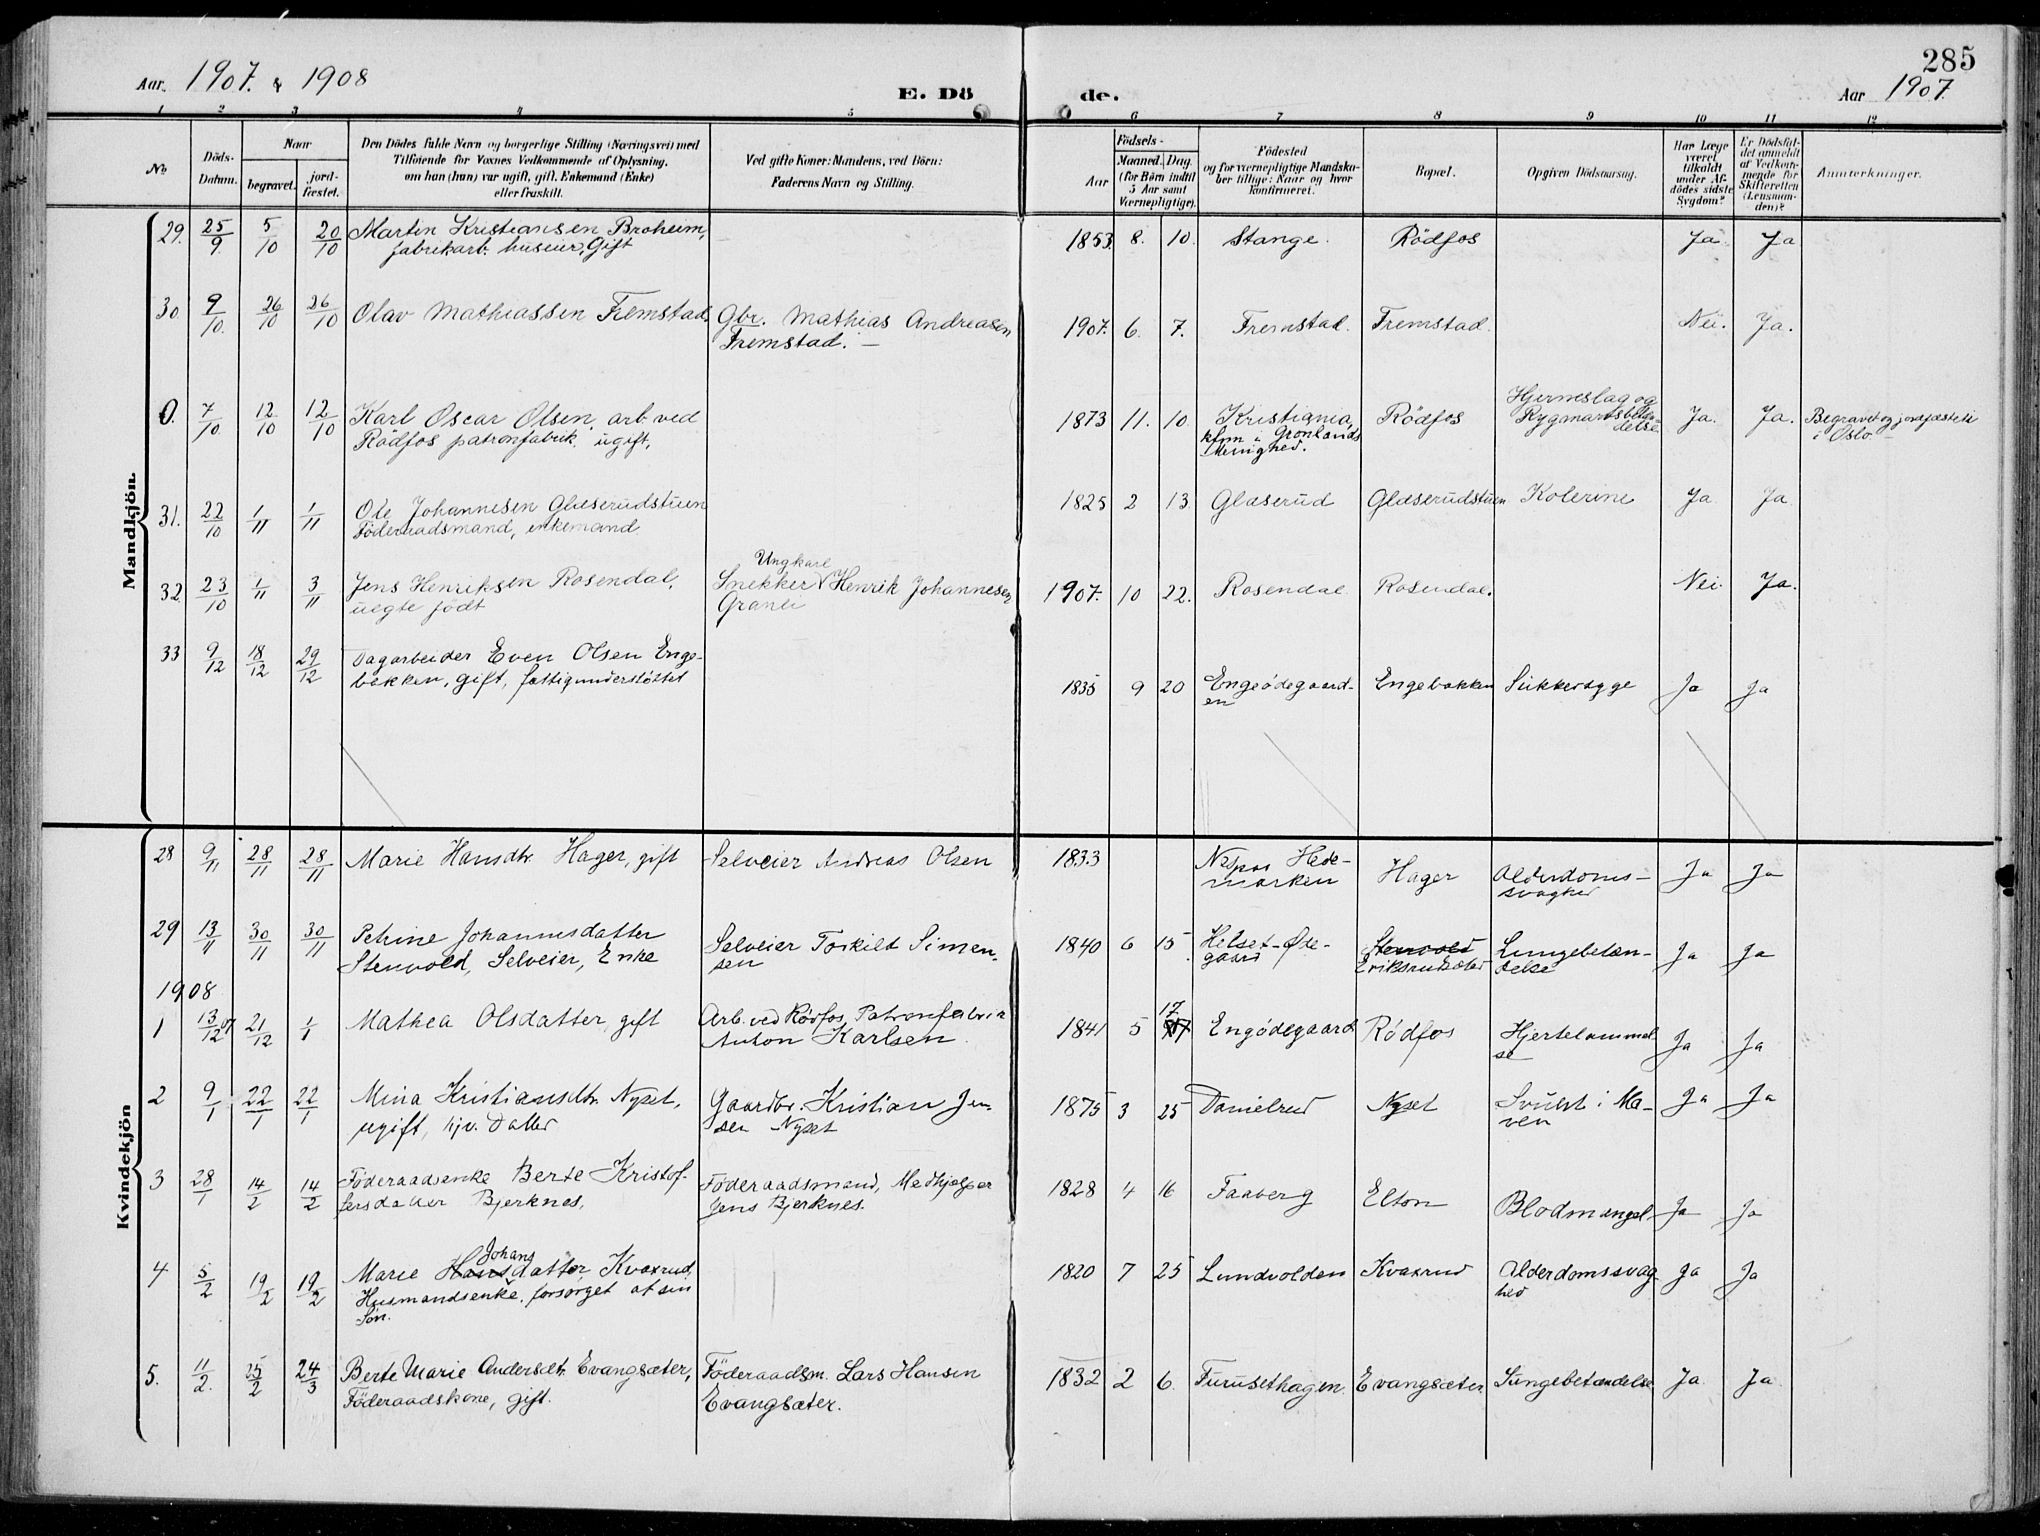 285
Aar. 1907. & 1908
E. Dö
de.
Aar 1907.
1 2 3 4 5 6 7 8 9 10 11 12
No.
Döds-
Datum.
Naar
begravet.
jord-
fæstet.
Den Dödes fulde Navn og borgerlige Stilling (Næringsvei) med
Tilföiende for Voxnes Vedkommende af Oplysning,
om han (hun) var ugift, gift, Enkemand (Enke)
eller fraskilt.
Ved gifte Koner: Mandens, ved Börn:
Faderens Navn og Stilling.
Födsels-
Aar
Maaned. Dag.
(for Börn indtil
5 Aar samt
Værnepligtige).
Födested
og for værnepligtige Mandska-
ber tillige: Naar og hvor
konfirmeret.
Bopæl.
Opgiven Dödsaarsag.
Har Læge
været
tilkaldt
under Af-
dödes sidste
Sygdom?
Er Dödsfal-
det anmeldt
af Vedkom-
mende for
Skifteretten
(Lensman-
den)?
Anmærkninger.
Mandkjön.
29. 25/9 5/10 20/10 Martin Kristiansen Broheim, 1853. 8. 10. Stange. Rödfos Ja. Ja
fabrikarb. huseier, Gift
30 9/10. 26/10 26/10 Olav Mathiassen Fremstad. Gbr. Mathias Andreasen 1907. 6. 7. Fremstad. Fremstad. Nei. Ja.
Fremstad. —
0. 7/10. 12/10 12/10 Karl Oscar Olsen, arb. ved 1873 11. 10. Kristiania, Rödfos Hjerneslag og Ja. Ja. Begravet og jordfæstet
Rödfos patronfabrik ugift. kfm i Grönlands Rygmarvsbeten- i Oslo. —
Menighed. delse.
31. 22/10 1/11 1/11 Ole Johannesen Glæserudstuen 1825 2 13. Glæserud Glæserudstuen Kolerine Ja. Ja.
Föderaadsmand, enkemand.
32. 23/10 1/11 3/11 Jens Henriksen Rosendal, Ungkarl 1907. 10 22. Rosendal Rosendal. Nei. Ja.
uegte födt Snekker Henrik Johannesen
Granli
33 9/12 18/12 29/12 Dagarbeider Even Olsen Enge- 1835 9 20 Engeödegaard- Engebakken Sukkersyge Ja Ja
bakken, gift, fattigunderstöttet en
Kvindekjön
28 9/11 28/11 28/11 Marie Hansdtr. Hager, gift Selveier Andreas Olsen 1833 Nes paa Hede- Hager Alderdoms- Ja Ja
marken svaghed
29 13/11 30/11 30/11 Petrine Johannesdatter Selveier Torkild Simen- 1840 6 15. Helset-Öde- Stenvold Lungebetæn- Ja Ja
Stenvold, Selveier, Enke sen gaard delse
1908
1 13/12 07 21/12 1/1 Mathea Olsdatter, gift Arb. ved Rödfos Patronfabrik 1841 5 17 Engödegaard Rödfos Hjertelammel- Ja Ja
Anton Karlsen. se
2 9/1 22/1 22/1 Mina Kristiansdtr. Nyset, Gaardbr. Kristian Jen- 1875 3 25 Danielrud Nyset Svulst i Ma- Ja Ja
ugift, hjv. Datter sen Nyset ven
3 28/1 14/2 14/2 Föderaadsenke Berte Kristof- Föderaadsmand, Medhjelper 1828 4 16 Faaberg Elton Blodmangel Ja Ja
fersdatter Bjerknes, Jens Bjerknes.
4 5/2 19/2 19/2 Marie Hansdatter Johans Kvaxrud, 1820 7 25 Lundvolden Kvaxrud Alderdomssvag- Ja Ja
Husmandsenke, forsörget af sin hed
Sön.
5. 11/2. 25/2 24/3 Berte Marie Andersdtr. Evangsæter, Föderaadsm. Lars Hansen 1832 2 6. Furusethagen Evangsæter Lungebetændelse Ja. Ja.
Föderaadskone, gift. Evangsæter.